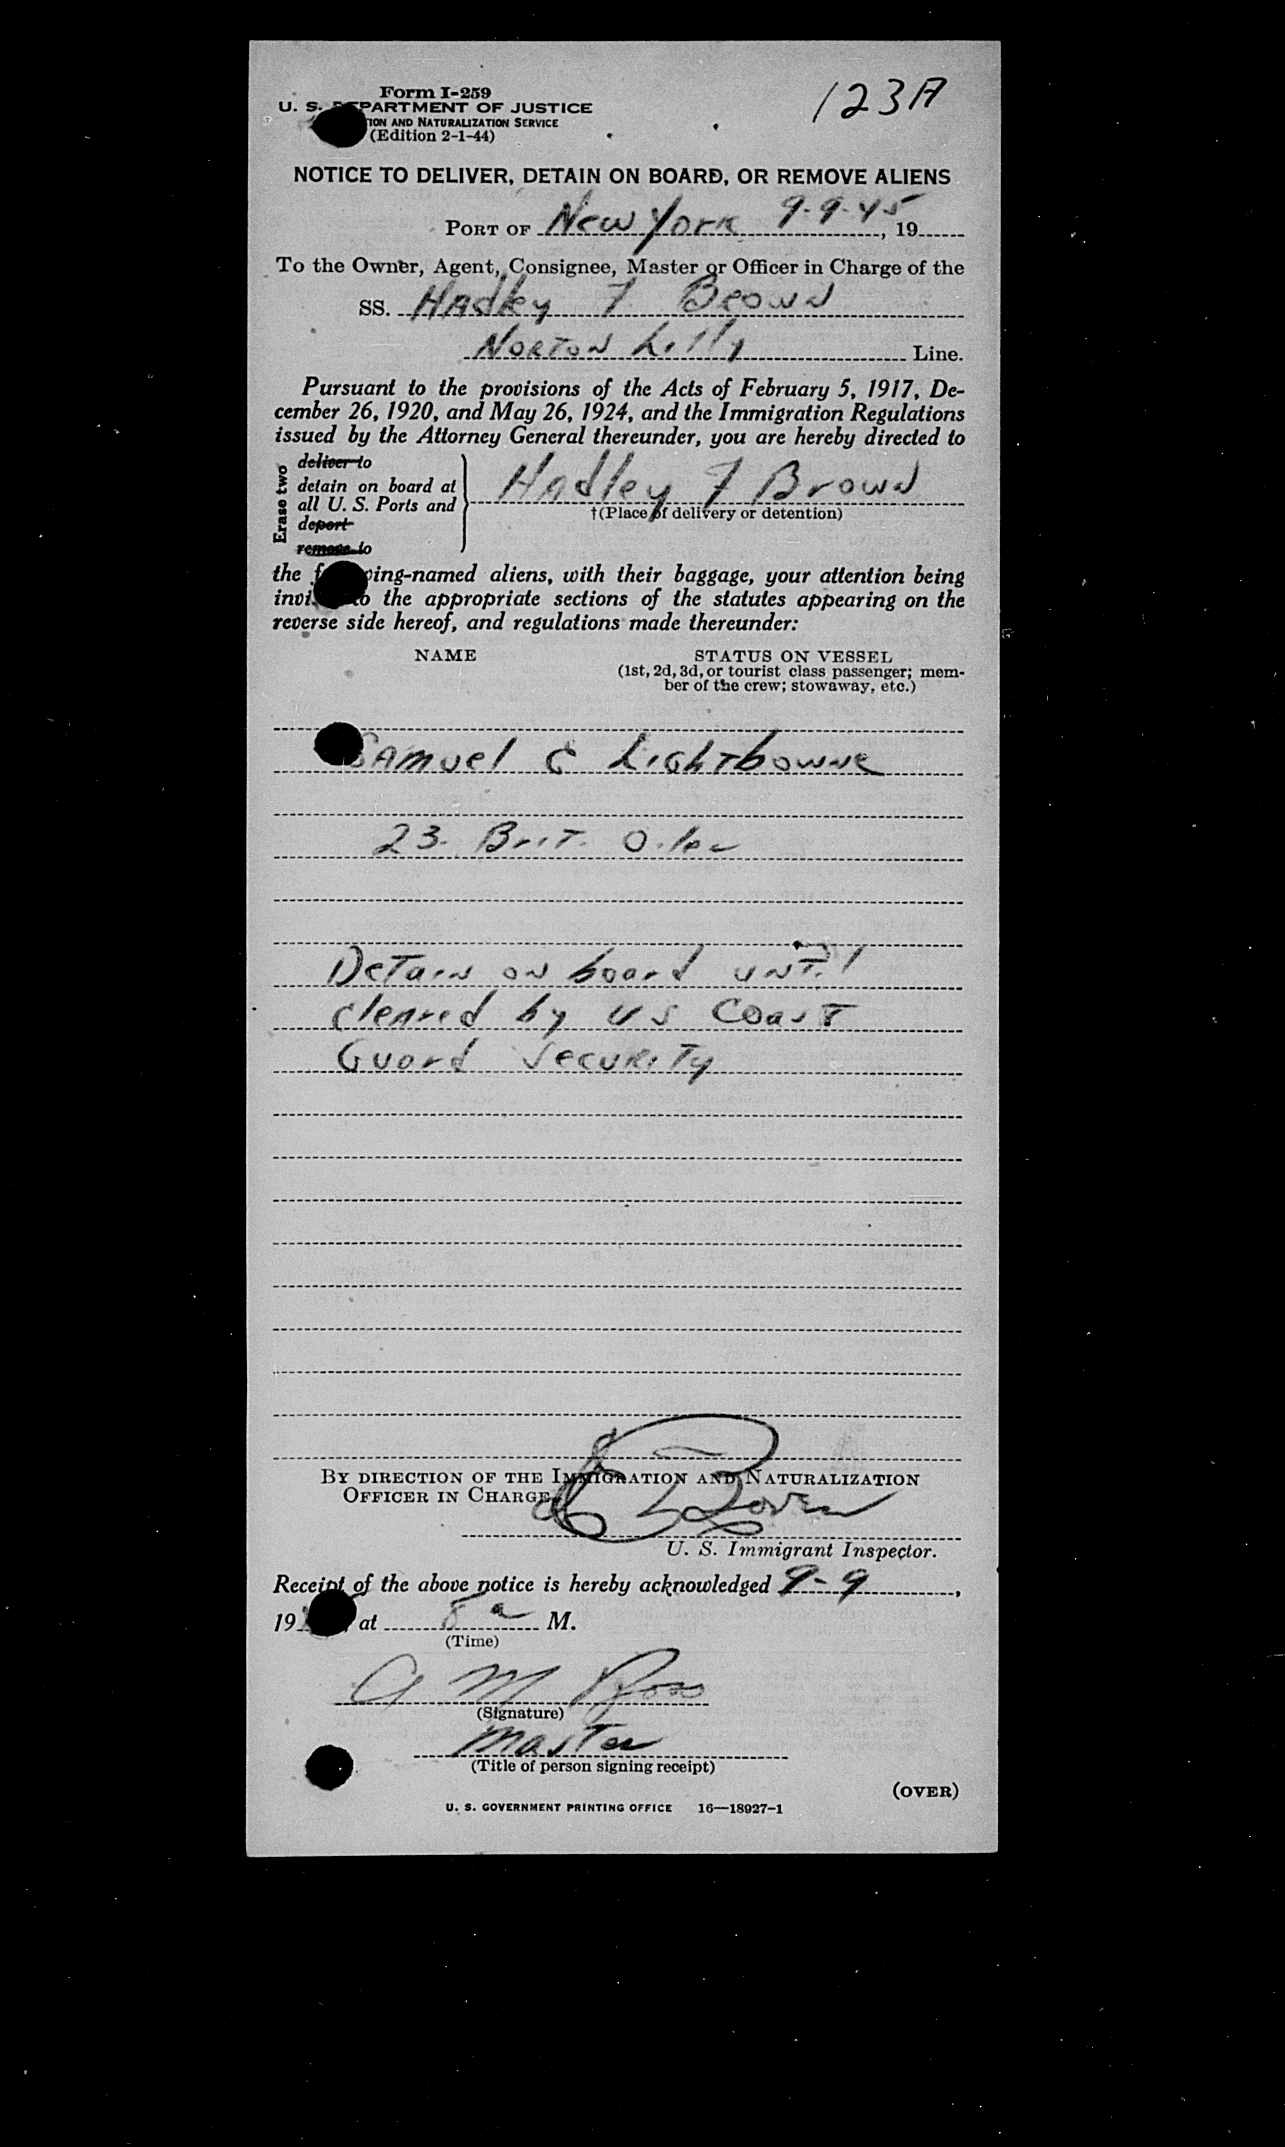 Form I-259
123A
U. S. DEPARTMENT OF JUSTICE
ION AND NATURALIZATION SERVICE
(Edition 2-1-44)
NOTICE TO DELIVER, DETAIN ON BOARD, OR REMOVE ALIENS
PORT OF New York 9-9-45, 19
To the Owner, Agent, Consignee, Master or Officer in Charge of the
SS. Hadley F Brown
Norton Lilly Line.
Pursuant to the provisions of the Acts of February 5, 1917, De-
cember 26, 1920, and May 26, 1924, and the Immigration Regulations
issued by the Attorney General thereunder, you are hereby directed to
Erase two
deliver to
detain on board at
all U. S. Ports and
deport
remove to
Hadley F Brown
†(Place of delivery or detention)
the following-named aliens, with their baggage, your attention being
invited to the appropriate sections of the statutes appearing on the
reverse side hereof, and regulations made thereunder:
NAME STATUS ON VESSEL
(1st, 2d, 3d, or tourist class passenger; mem-
ber of the crew; stowaway, etc.)
Samuel C Lightbowne
23. Brit. Oiler
Detain on board until
cleared by US Coast
Guard Security
BY DIRECTION OF THE IMMIGRATION AND NATURALIZATION
OFFICER IN CHARGE
U. S. Immigrant Inspector.
Receipt of the above notice is hereby acknowledged 9-9,
19 , at 8 a M.
(Time)
A M Ross
(Signature)
Master
(Title of person signing receipt)
(OVER)
U. S. GOVERNMENT PRINTING OFFICE 16—18927-1